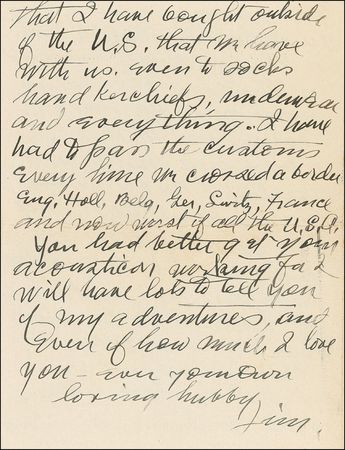 that I have bought outside
of the U.S. that we have
with us. even to socks
handkerchiefs, underwear
and everything. I have
had to pass the customs
every time we crossed a border
Eng, Holl, Belg, Ger, Switz, France
and now worst of all the U.S.A.
You had better get your
acousticon working for I
will have lots to tell you
of my adventures, and
even of how much I love
you - ever your own
loving hubby
Jim.